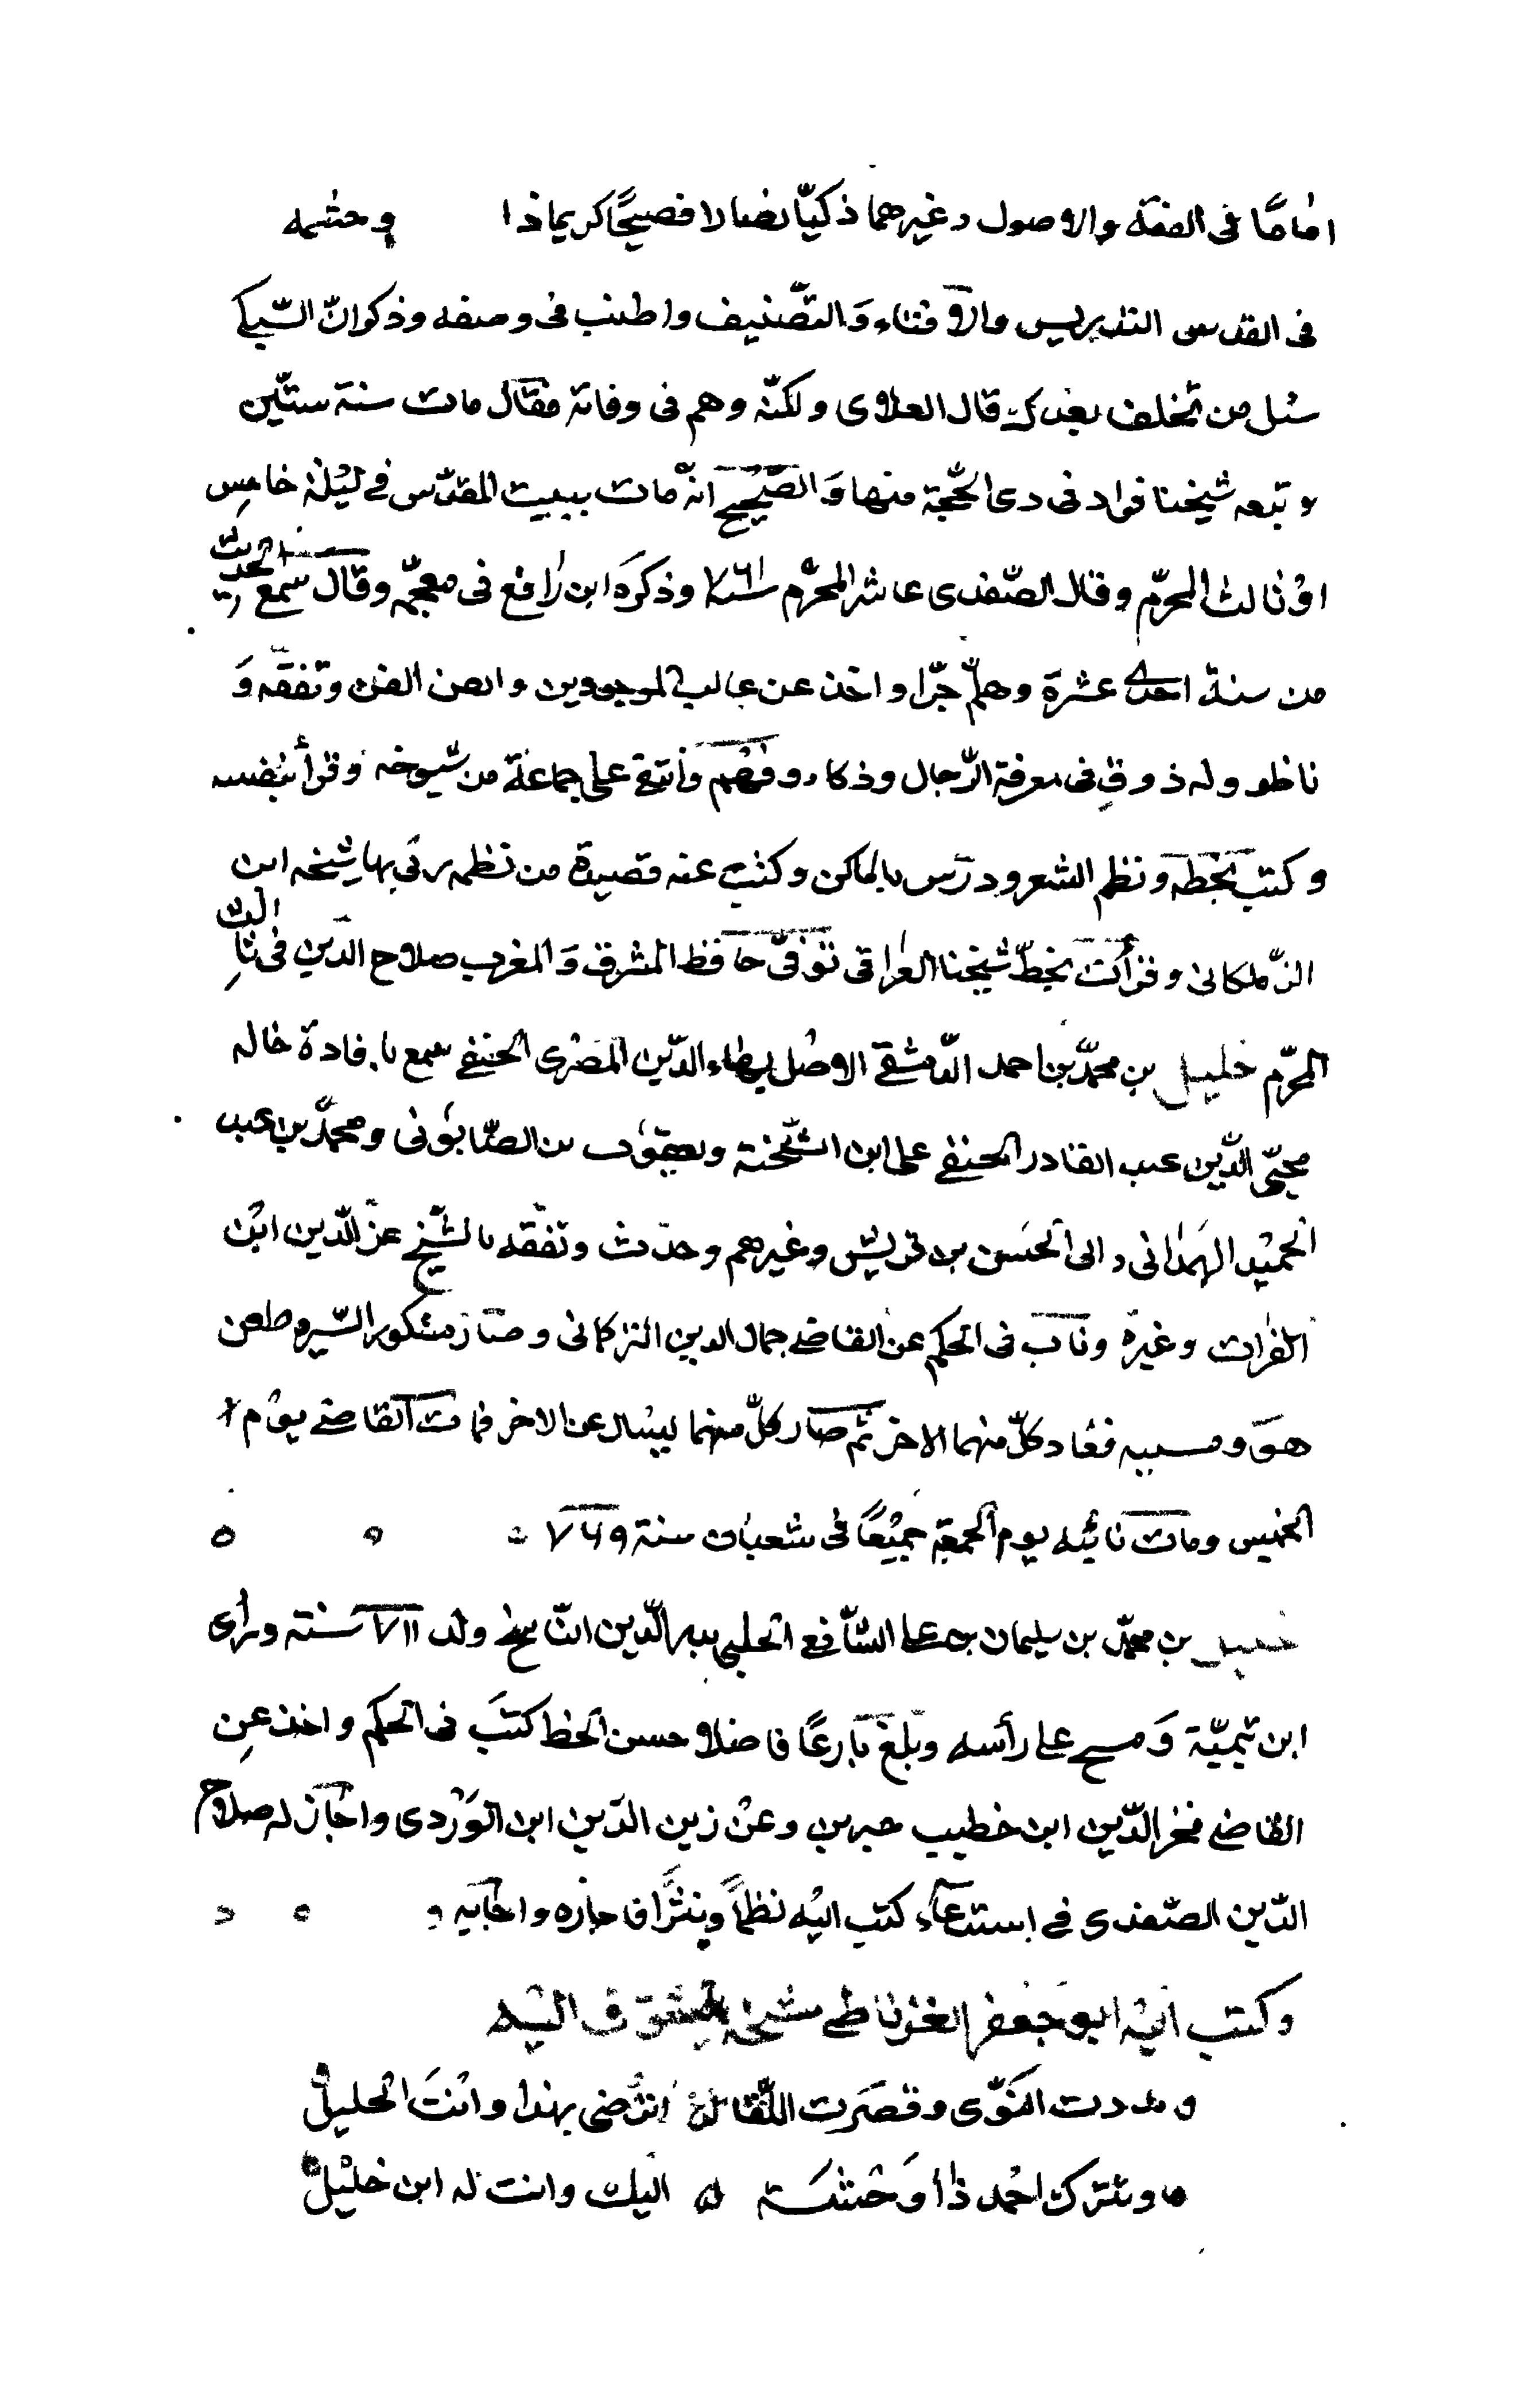 امامًا فى الفقه والاصول وغيرهما ذكيّا نضالا فصيحًا كريما ذا وحشمه
فى القدس التدريس والافتاء وَالتصّنيف واطنب فى وصفه وذكر انّ السّبكى
سئل من تخلف بعدك قال العلاى ولكنّه وهم فى وفاته فقال مات سنة ستّين
و تبعه شيخنا فزاد فى ذى الحجّة منها وَالصّحيح انّه مات ببيت المقدّس فى ليْلة خامس
اوْ ثالث المحرّم وقال الصّفدى عاشر المحرّم سنة ٧٦١ وذكرَه ابن رافع فى معجمه وقال سمع الحديث
من سنة احدى عشرة وهلمّ جرّا واخذ عن غالب الموجودين واتصن الفن وتفقّه وَ
ناظر وله ذوقِ فى معرفة الرّجال وذكاء وفهْم وَانتقى على جماعَة من شيوخه وقرأ بنفسه
وكتب بخطّه ونظم الشعر ودرّس باماكن وكتبت عنه قصيدة من نظمه رثى بها شيخه ابن
الزّملكانى وقرأت بخطّ شيخنا العراقى توفىّ حافظ المشرق وَالمغرب صلاح الدّين فى ثالث
المحرّم خليل بن محمّد بن احمد الدّمشقى الاصْل بهاء الدّين المصْرى الحنفى سمع بافادة خاله
محيى الدّين عبد القادر الحنفى على ابن الشّحنة ويعقوب بن الصّابوْنى ومحمّد بن عبد
الحميْد الهمَدانى وابى الحسَن بن قريش وغيرهم وحدّث وتفقّه بالشّيخ عزّ الدّين ابْن
الفرات وغيره ونابَ فى الحكم عن القاضى جمال الدين التركمانى وصَار مشكور السّيره طعن
هوَ و فعاد كلّ منهما الاخر ثم صَار كلّ منهما ليسْال عن الاخر فمات القاضى يوْم
الخميس ومات نائبه يوم الجمعة جميْعًا فى شعبان سنة ٧٦٩
خليل بن محمّد بن سليمان بن على الشّافعى الحلبى بدر الدّين النّاسخ ولد ٧١١ سَنته ورأى
ابن تيميّة وَمسح على رأسه وبلغ بَارعًا فاضلا حسن الخط كتبَ فى الحكم واخذ عنِ
القاضى فخر الدّين ابن خطيب جبرين وعنْ زين الدّين ابن الوَرْدى واجَاز له صلاح
الدّين الصّفدى فى استدعاء كتب اليْه نظمًا ونثرًا فاجازه واجابه
وكتب اليْه ابو جعْفر الغرناطى
ومددت النوّى وقصَرت اللّقا اترْضى بهذا وانْتَ الخليلْ
وتترك احْمد ذا وَحْشَة اليك وانت له ابن خليْلْ